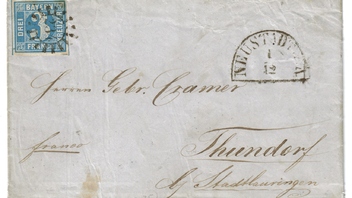 BAYERN
DREI
KREUZER
FRANCO
3
NEUSTADT
1
12
Herren Gebr. Cramer
franco
Thundorf
b/ Stadtlauringen